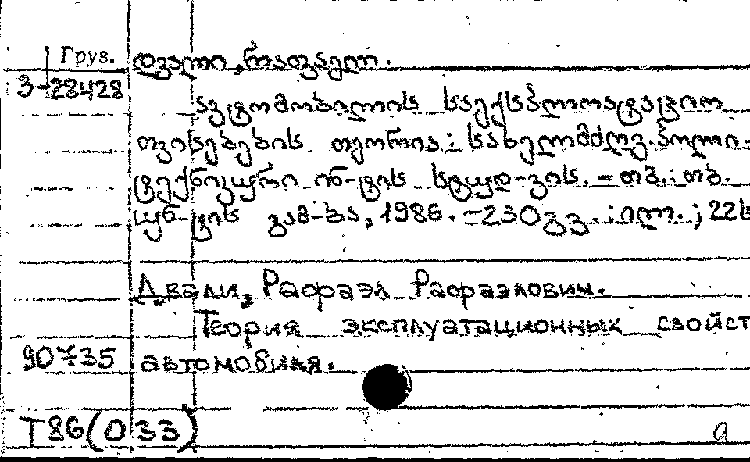 Груз. დვალი, რაფაელ.
3-28428
ავტომობილის საექსპლოატაციო
თვისებების თეორია: სახელმძღვ. პოლი-
ტექნიკური ინ-ტის სტუდ-ვის. – თბ.: თბ.
უნ-ტის გამ-ბა, 1986. – 230 გვ.: ილ.; 22ს
Двали, Рафаэл Рафаэлович.
Теория эксплуатационных свойст
90735 автомобиля.
Т86(033) а